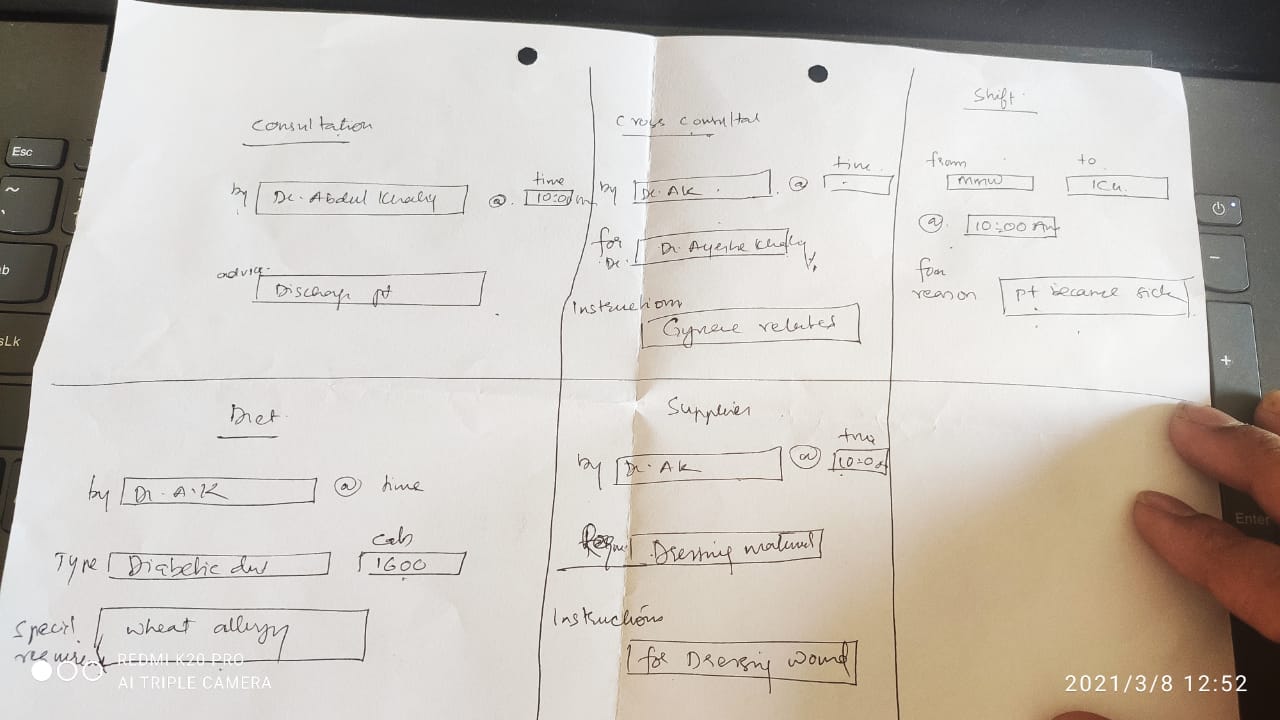 Consultation
by Dr. Abdul Khaliq @ time 10:00
advice
Discharge pt
Cross Consultat
by Dr. AK. @ time
for Dr. Dr. Ayesha
Instructions
Gynene related
Shift
from to
MMW ICU.
@ 10:00 Am
for reason pt became sick
Diet
by Dr. A.K @ time
Type Diabetic cals 1600
Special require wheat allergy
Supplies
by Dr. AK @ time 10:00
Dressing material
Instructions
for Dressing wound
Esc
Enter
REDMI K20 PRO
AI TRIPLE CAMERA
2021/3/8 12:52